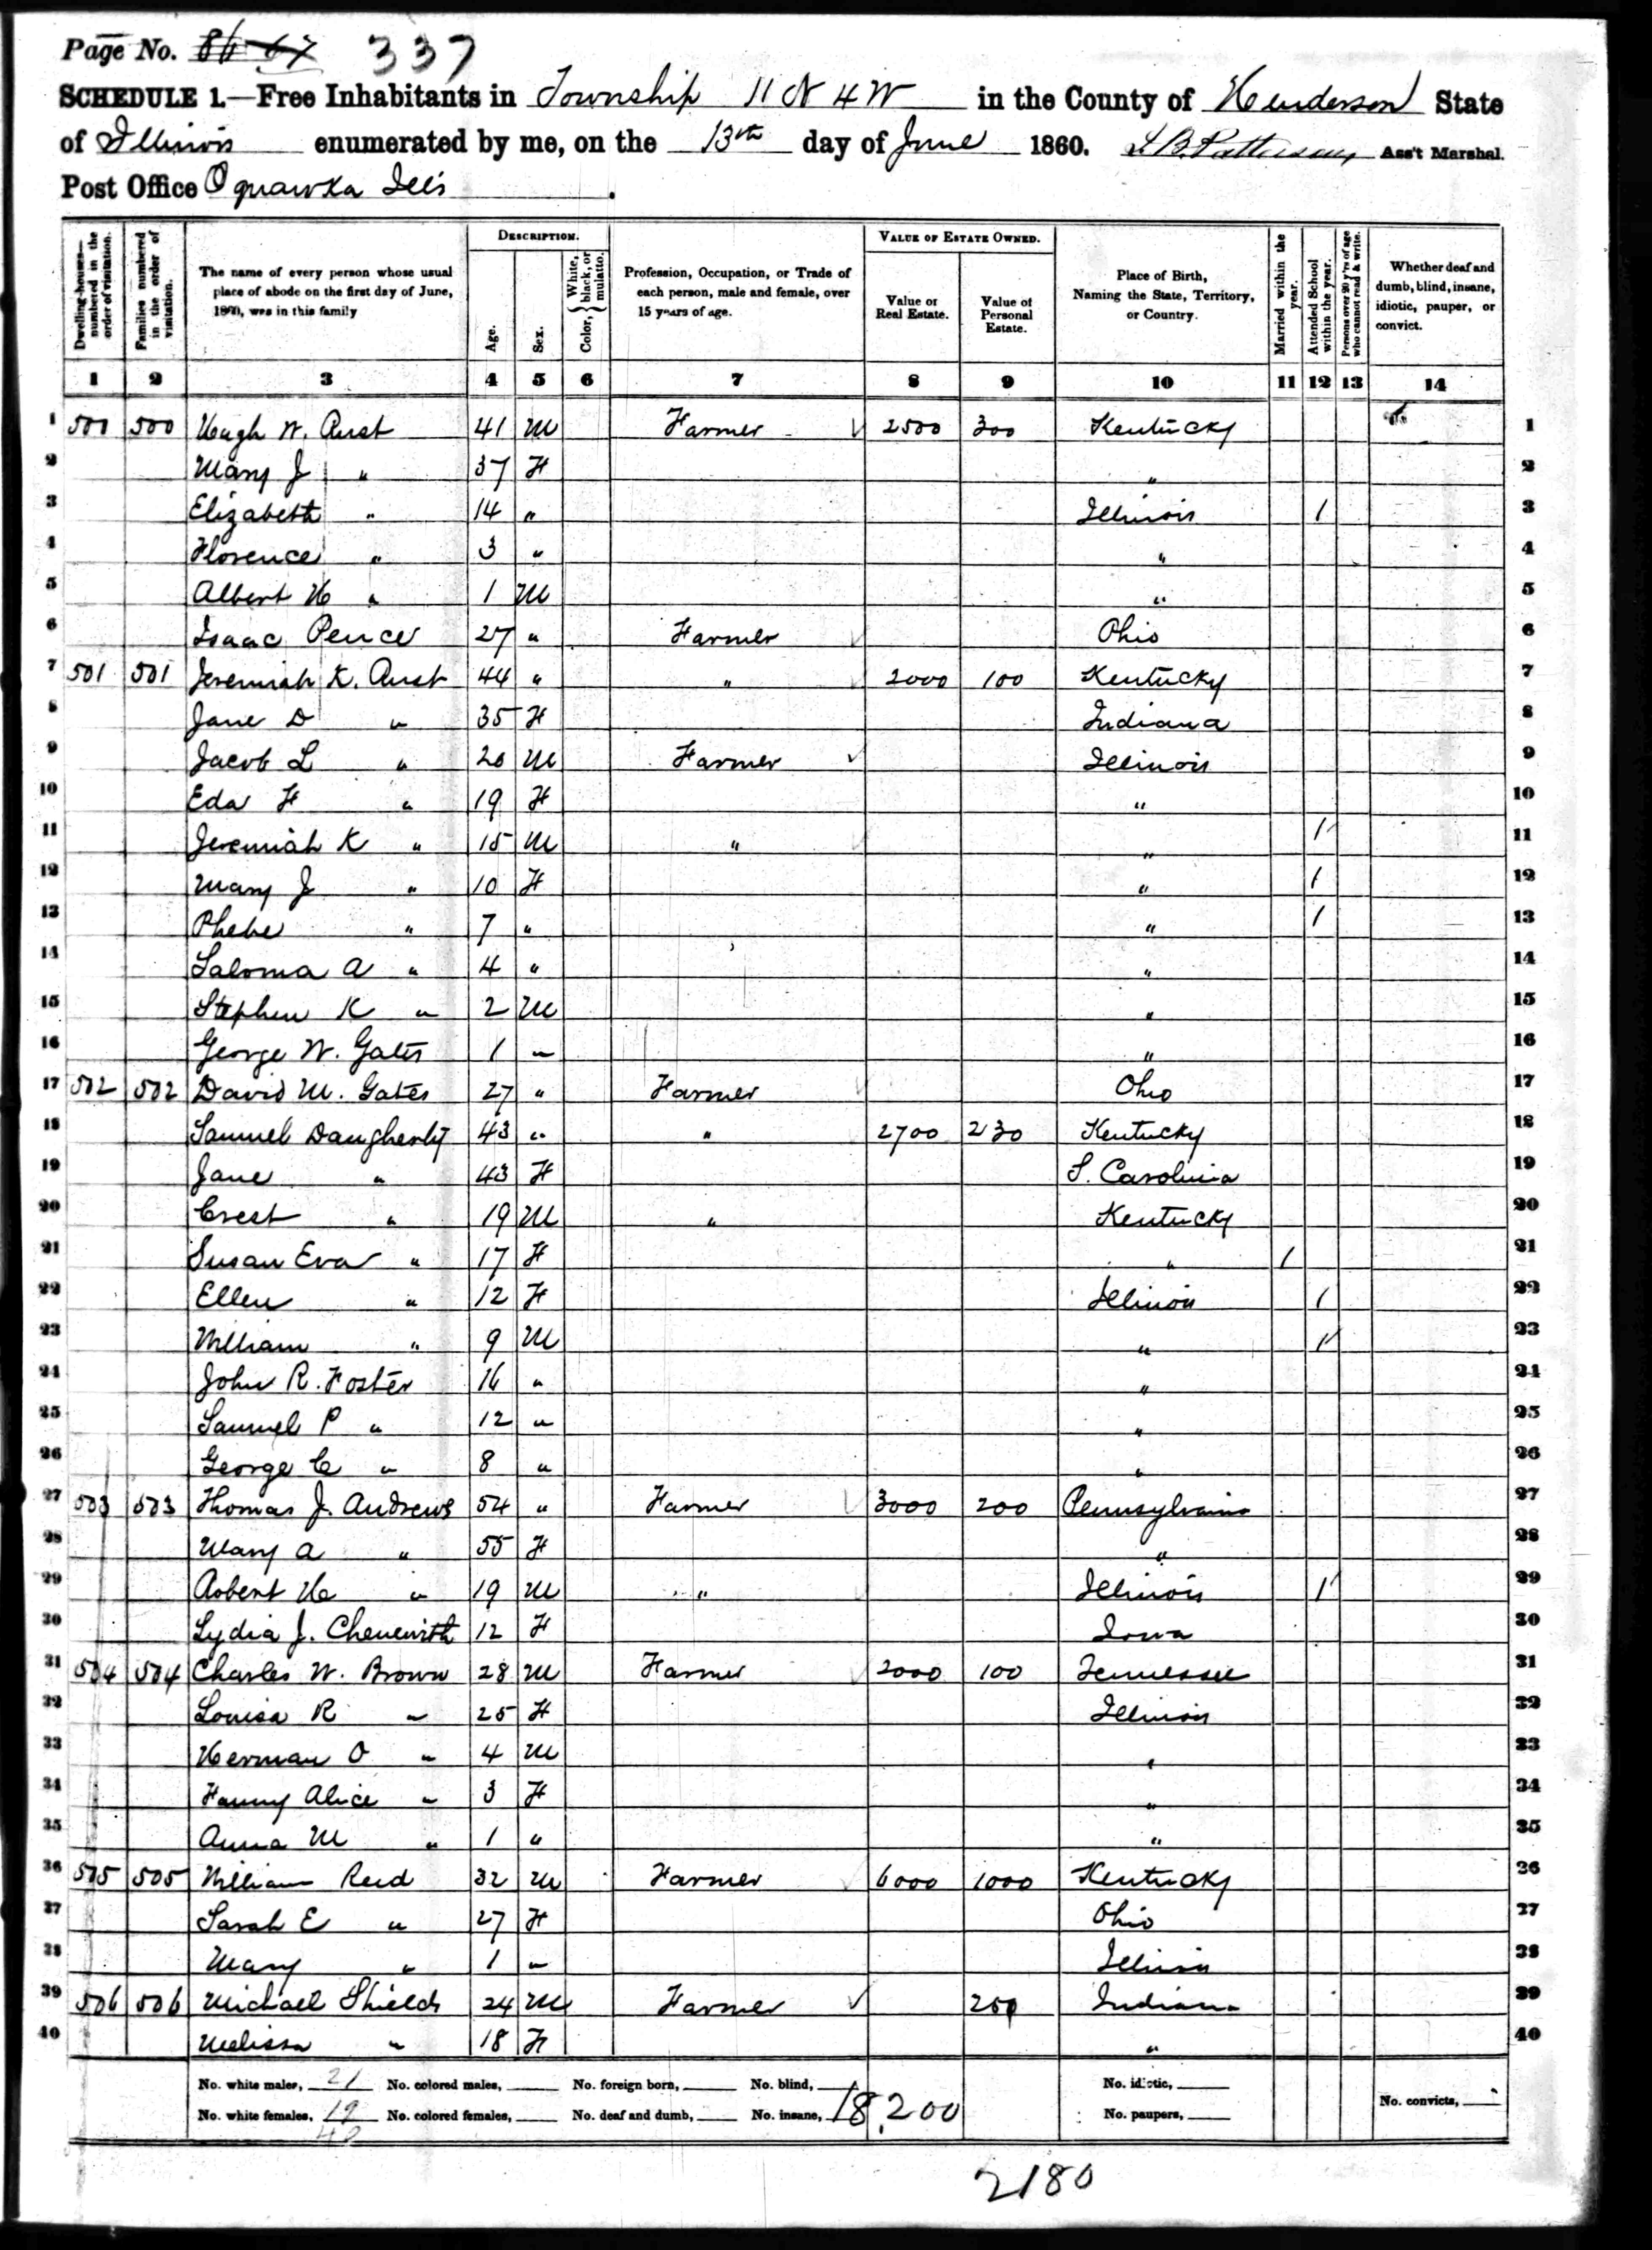 Page No. 86 67 337
SCHEDULE 1.—Free Inhabitants in Township 11 N 4 W in the County of Henderson State
of Illinois enumerated by me, on the 13th day of June 1860. Ass't Marshal.
Post Office Oquawka Ills.
Dwelling-houses—numbered in the order of visitation.
Families numbered in the order of visitation.
The name of every person whose usual place of abode on the first day of June, 1860, was in this family
DESCRIPTION.
Age.
Sex.
Color, { White, black, or mulatto.
Profession, Occupation, or Trade of each person, male and female, over 15 years of age.
VALUE OF ESTATE OWNED.
Value of Real Estate.
Value of Personal Estate.
Place of Birth, Naming the State, Territory, or Country.
Married within the year.
Attended School within the year.
Persons over 20 y'rs of age who cannot read & write.
Whether deaf and dumb, blind, insane, idiotic, pauper, or convict.
1 2 3 4 5 6 7 8 9 10 11 12 13 14
1 500 500 Hugh W. Rust 41 M Farmer 2500 300 Kentucky 1
2 Mary J " 37 F " 2
3 Elizabeth " 14 " Illinois 1 3
4 Florence " 3 " " 4
5 Albert H " 1 M " 5
6 Isaac Pence 27 " Farmer Ohio 6
7 501 501 Jeremiah K. Rust 44 " " 2000 100 Kentucky 7
8 Jane D " 35 F Indiana 8
9 Jacob L " 20 M Farmer Illinois 9
10 Eda F " 19 F " 10
11 Jeremiah K " 15 M " " 1 11
12 Mary J " 10 F " 1 12
13 Phebe " 7 " " 1 13
14 Saloma A " 4 " " 14
15 Stephen K " 2 M " 15
16 George W. Gates 1 " " 16
17 502 502 David M. Gates 27 " Farmer Ohio 17
18 Samuel Daugherty 43 " " 2700 230 Kentucky 18
19 Jane " 43 F S. Carolina 19
20 Crest " 19 M " Kentucky 20
21 Susan Eva " 17 F " 1 21
22 Ellen " 12 F Illinois 1 22
23 William " 9 M " 1 23
24 John R. Foster 16 " " 24
25 Samuel P " 12 " " 25
26 George C " 8 " " 26
27 503 503 Thomas J. Andrews 54 " Farmer 3000 200 Pennsylvania 27
28 Mary A " 55 F " 28
29 Robert H " 19 M " Illinois 1 29
30 Lydia J. Chenewith 12 F Iowa 30
31 504 504 Charles W. Brown 28 M Farmer 2000 100 Tennessee 31
32 Louisa R " 25 F Illinois 32
33 Herman O " 4 M " 33
34 Fanny Alice " 3 F " 34
35 Anna M " 1 " " 35
36 505 505 William Reid 32 M Farmer 6000 1000 Kentucky 36
37 Sarah E " 27 F Ohio 37
38 Mary " 1 " Illinois 38
39 506 506 Michael Shields 24 M Farmer 250 Indiana 39
40 Melissa " 18 F " 40
No. white males, 21 No. colored males, No. foreign born, No. blind, No. idiotic,
No. white females, 19 No. colored females, No. deaf and dumb, No. insane, 18,200 No. paupers, No. convicts,
40
2180